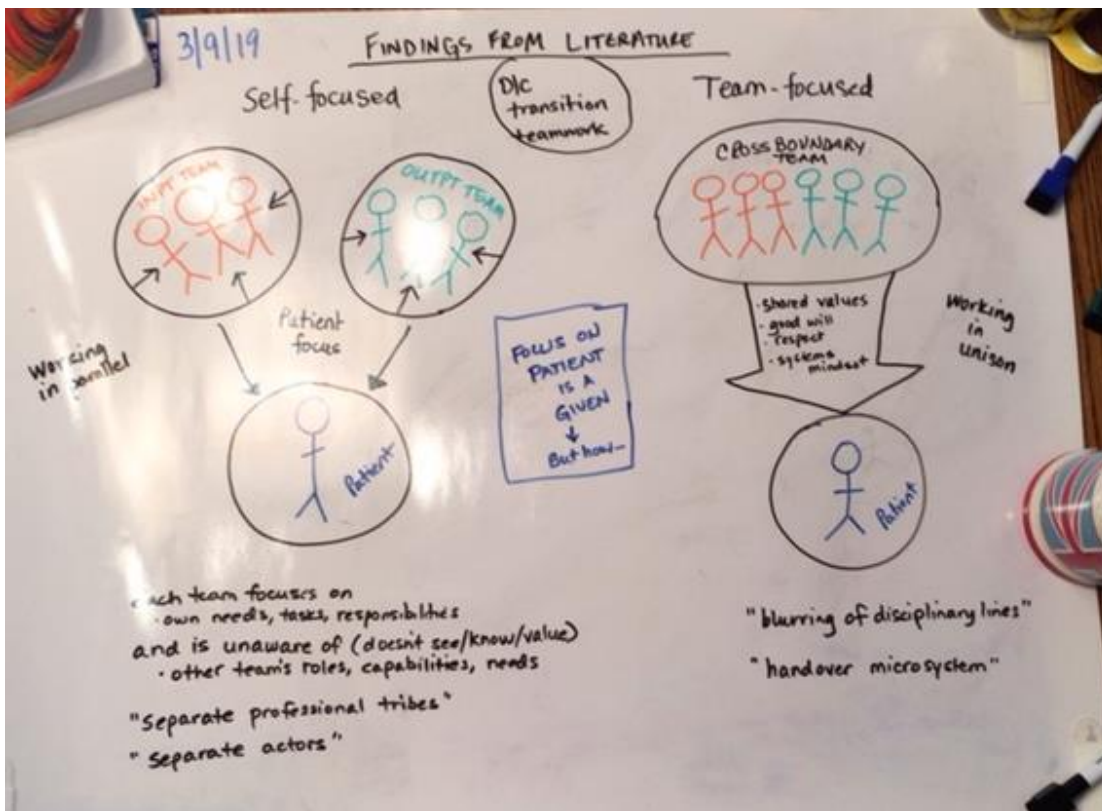 3/9/19
FINDINGS FROM LITERATURE
Self-focused
D/C
transition
teamwork
Team-focused
INPT TEAM
OUTPT TEAM
CROSS BOUNDARY
TEAM
Patient
focus
Working
in parallel
Patient
FOCUS ON
PATIENT
IS A
GIVEN
But how...
· shared values
· good will
· respect
· systems
mindset
Working
in
unison
Patient
each team focuses on
· own needs, tasks, responsibilities
and is unaware of (doesn't see/know/value)
· other team's roles, capabilities, needs
"Separate professional tribes"
"separate actors"
"blurring of disciplinary lines"
"handover microsystem"